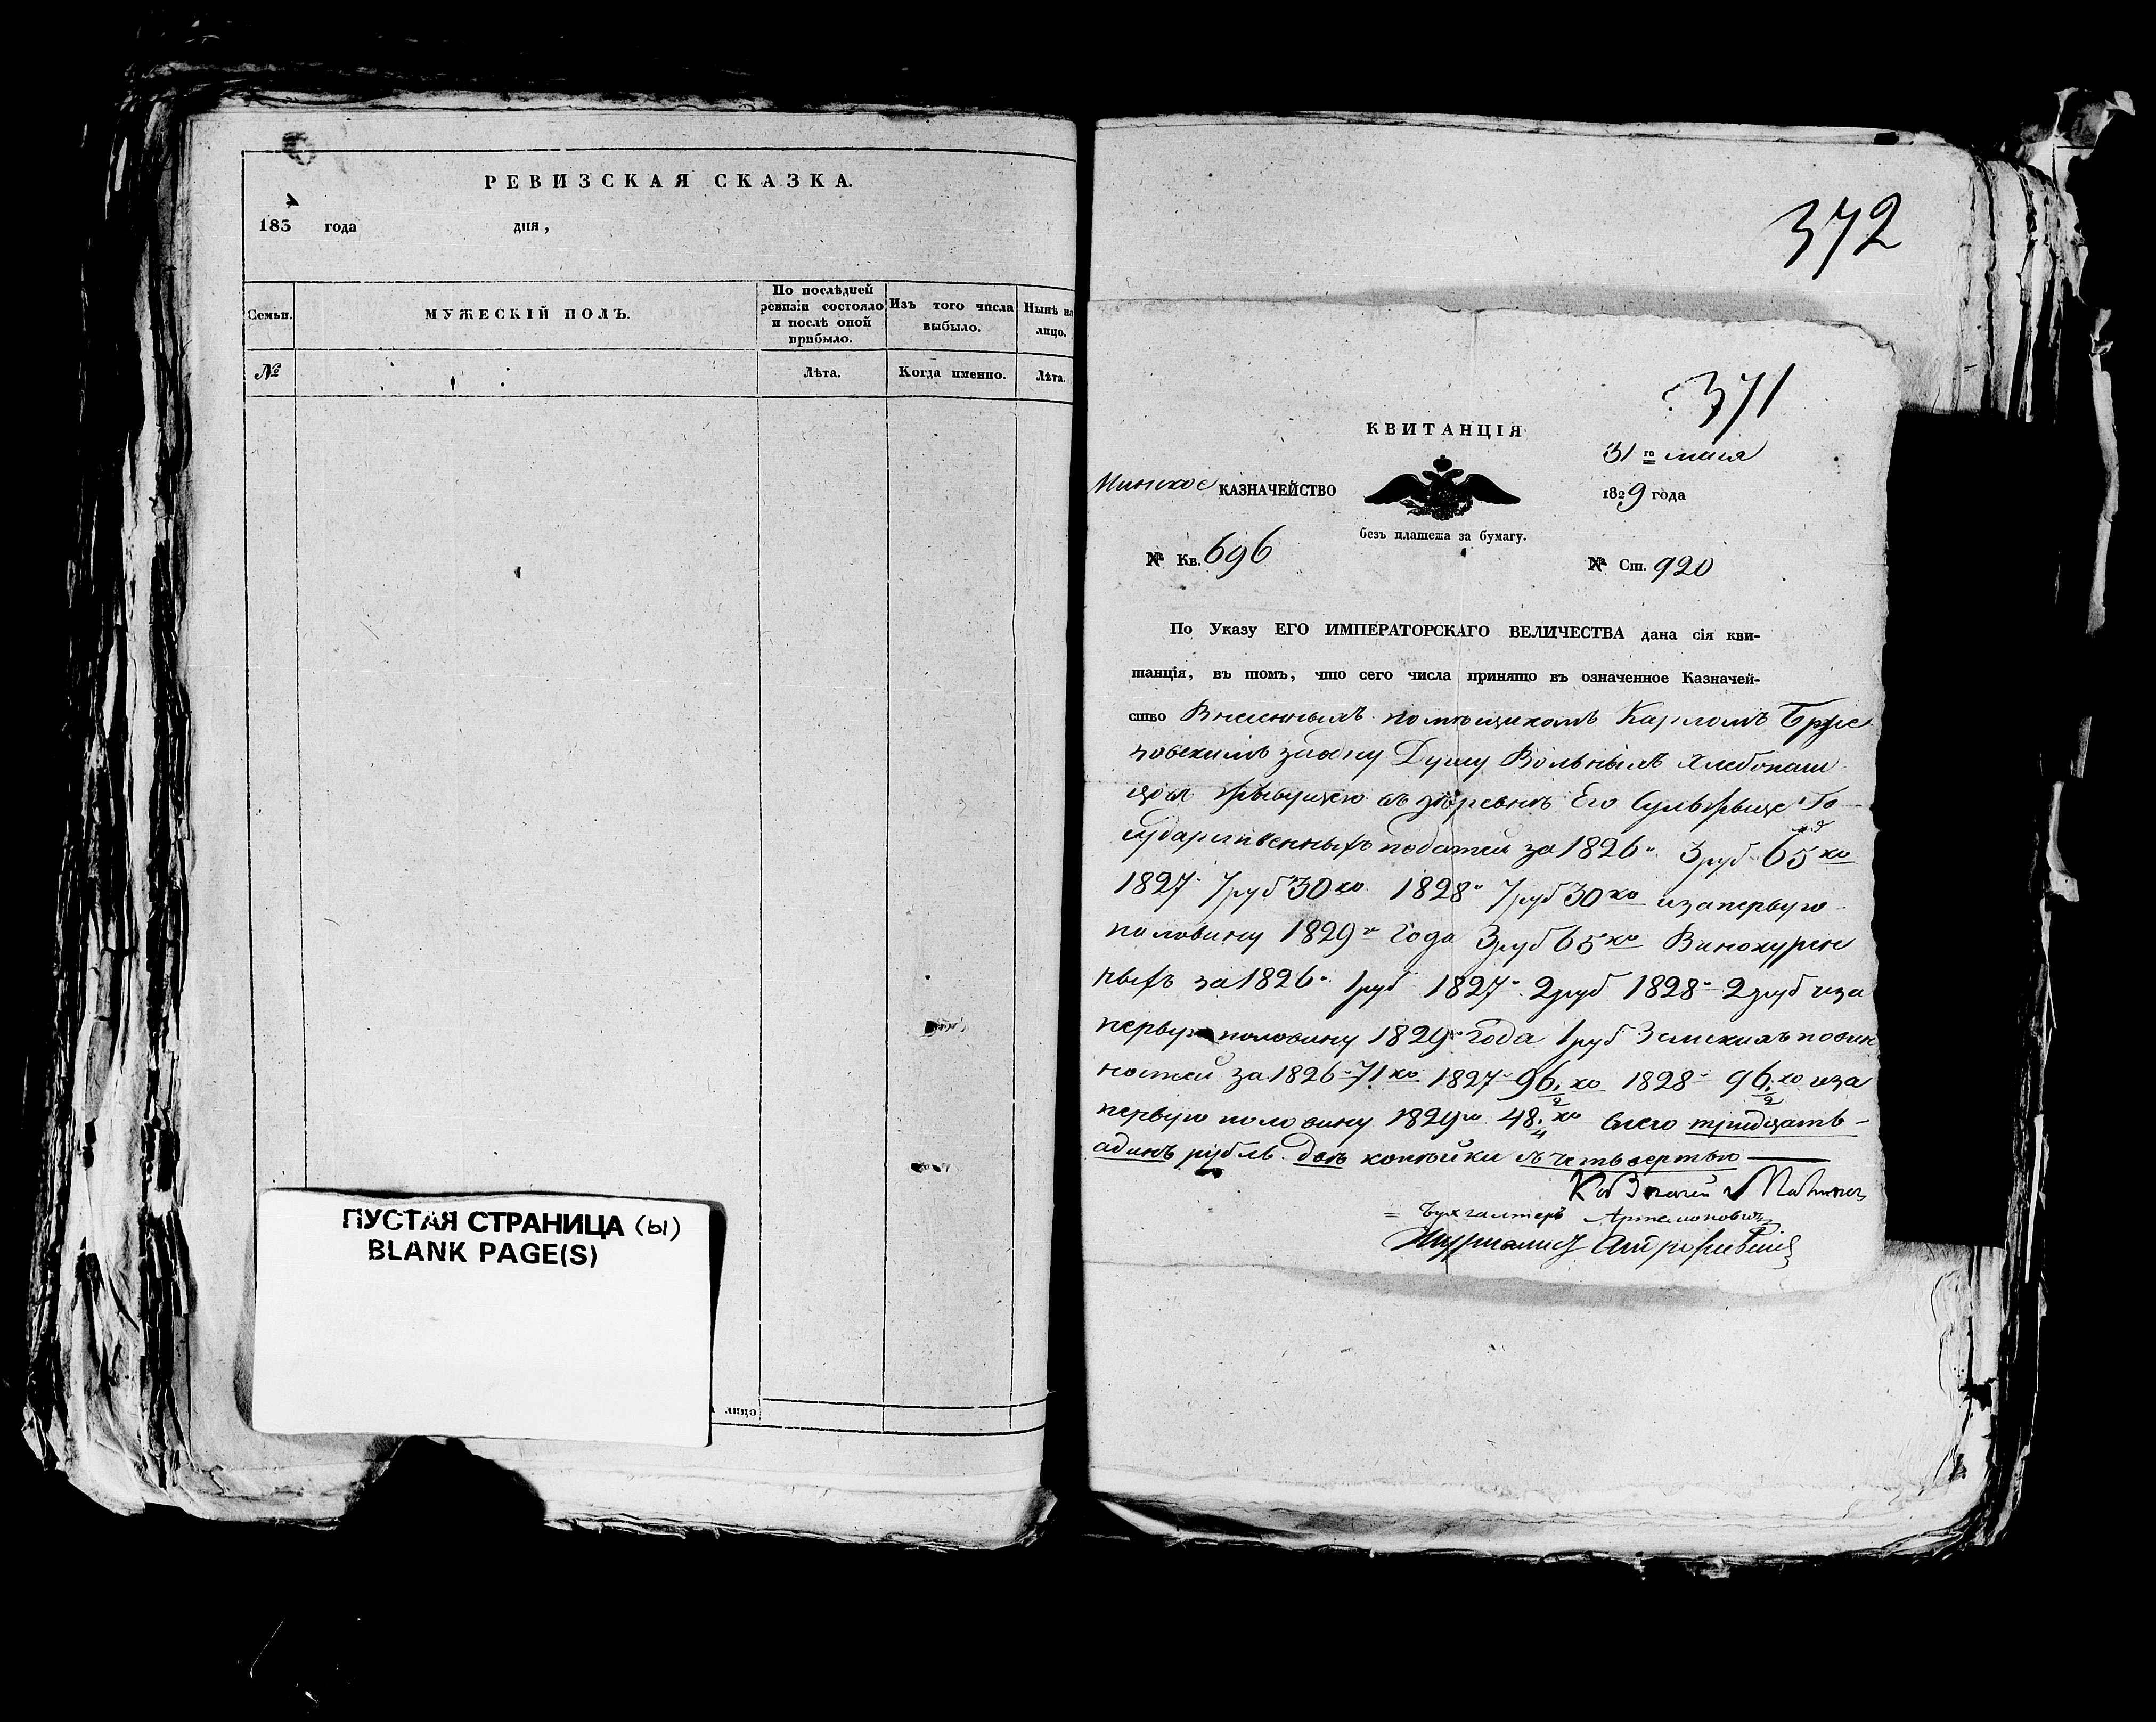 РЕВИЗСКАЯ СКАЗКА.
1834 года дня,
Семьи.
МУЖЕСКІЙ ПОЛЪ.
По послѣдней
ревизіи состояло
и послѣ оной
прибыло.
Изъ того числа
выбыло.
Нынѣ на
лицо.
№
Лѣта.
Когда именно.
Лѣта.
ПУСТАЯ СТРАНИЦА (Ы)
BLANK PAGE(S)
лицо
372
371
КВИТАНЦІЯ
31го маія
Минское КАЗНАЧЕЙСТВО
1829 года
безъ платежа за бумагу.
№ Кв. 696
№ Ст. 920
По Указу ЕГО ИМПЕРАТОРСКАГО ВЕЛИЧЕСТВА дана сія кви-
танція, въ томъ, что сего числа принято въ означенное Казначей-
ство помещикомъ Карломъ
за одну Душу Вольныхъ хлебопаш
въ деревнѣ Его Го
сударственныхъ податей за 1826 3 руб 65 ко
1827 7 руб 30 ко 1828 7 руб 30 ко и за первую
половину 1829го года 3 руб 65 ко Винокурен
ныхъ за 1826 1 руб 1827 2 руб 1828 2 руб и за
первую половину 1829 года 1 руб Земскихъ повин
ностей за 1826 71 ко 1827 96 1/2 ко 1828 96 1/2 ко и за
первую половину 1829го 48 1/4 ко всего тридцать
адинъ рубль две копѣйки съ четвертью
Казначей
Бухгалтеръ Артемоновичъ
Журналист